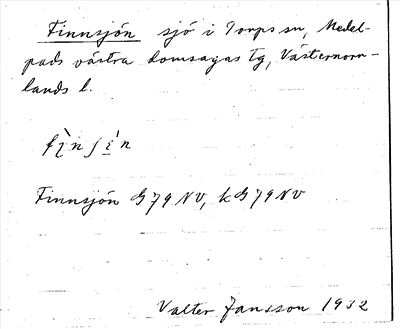 Finnsjön sjö i Torps sn, Medel-
pads västra domsagas tg, Västernorr-
lands l.
Finnsjön G 79 NV, kG 79 NV
Valter Jansson 1932